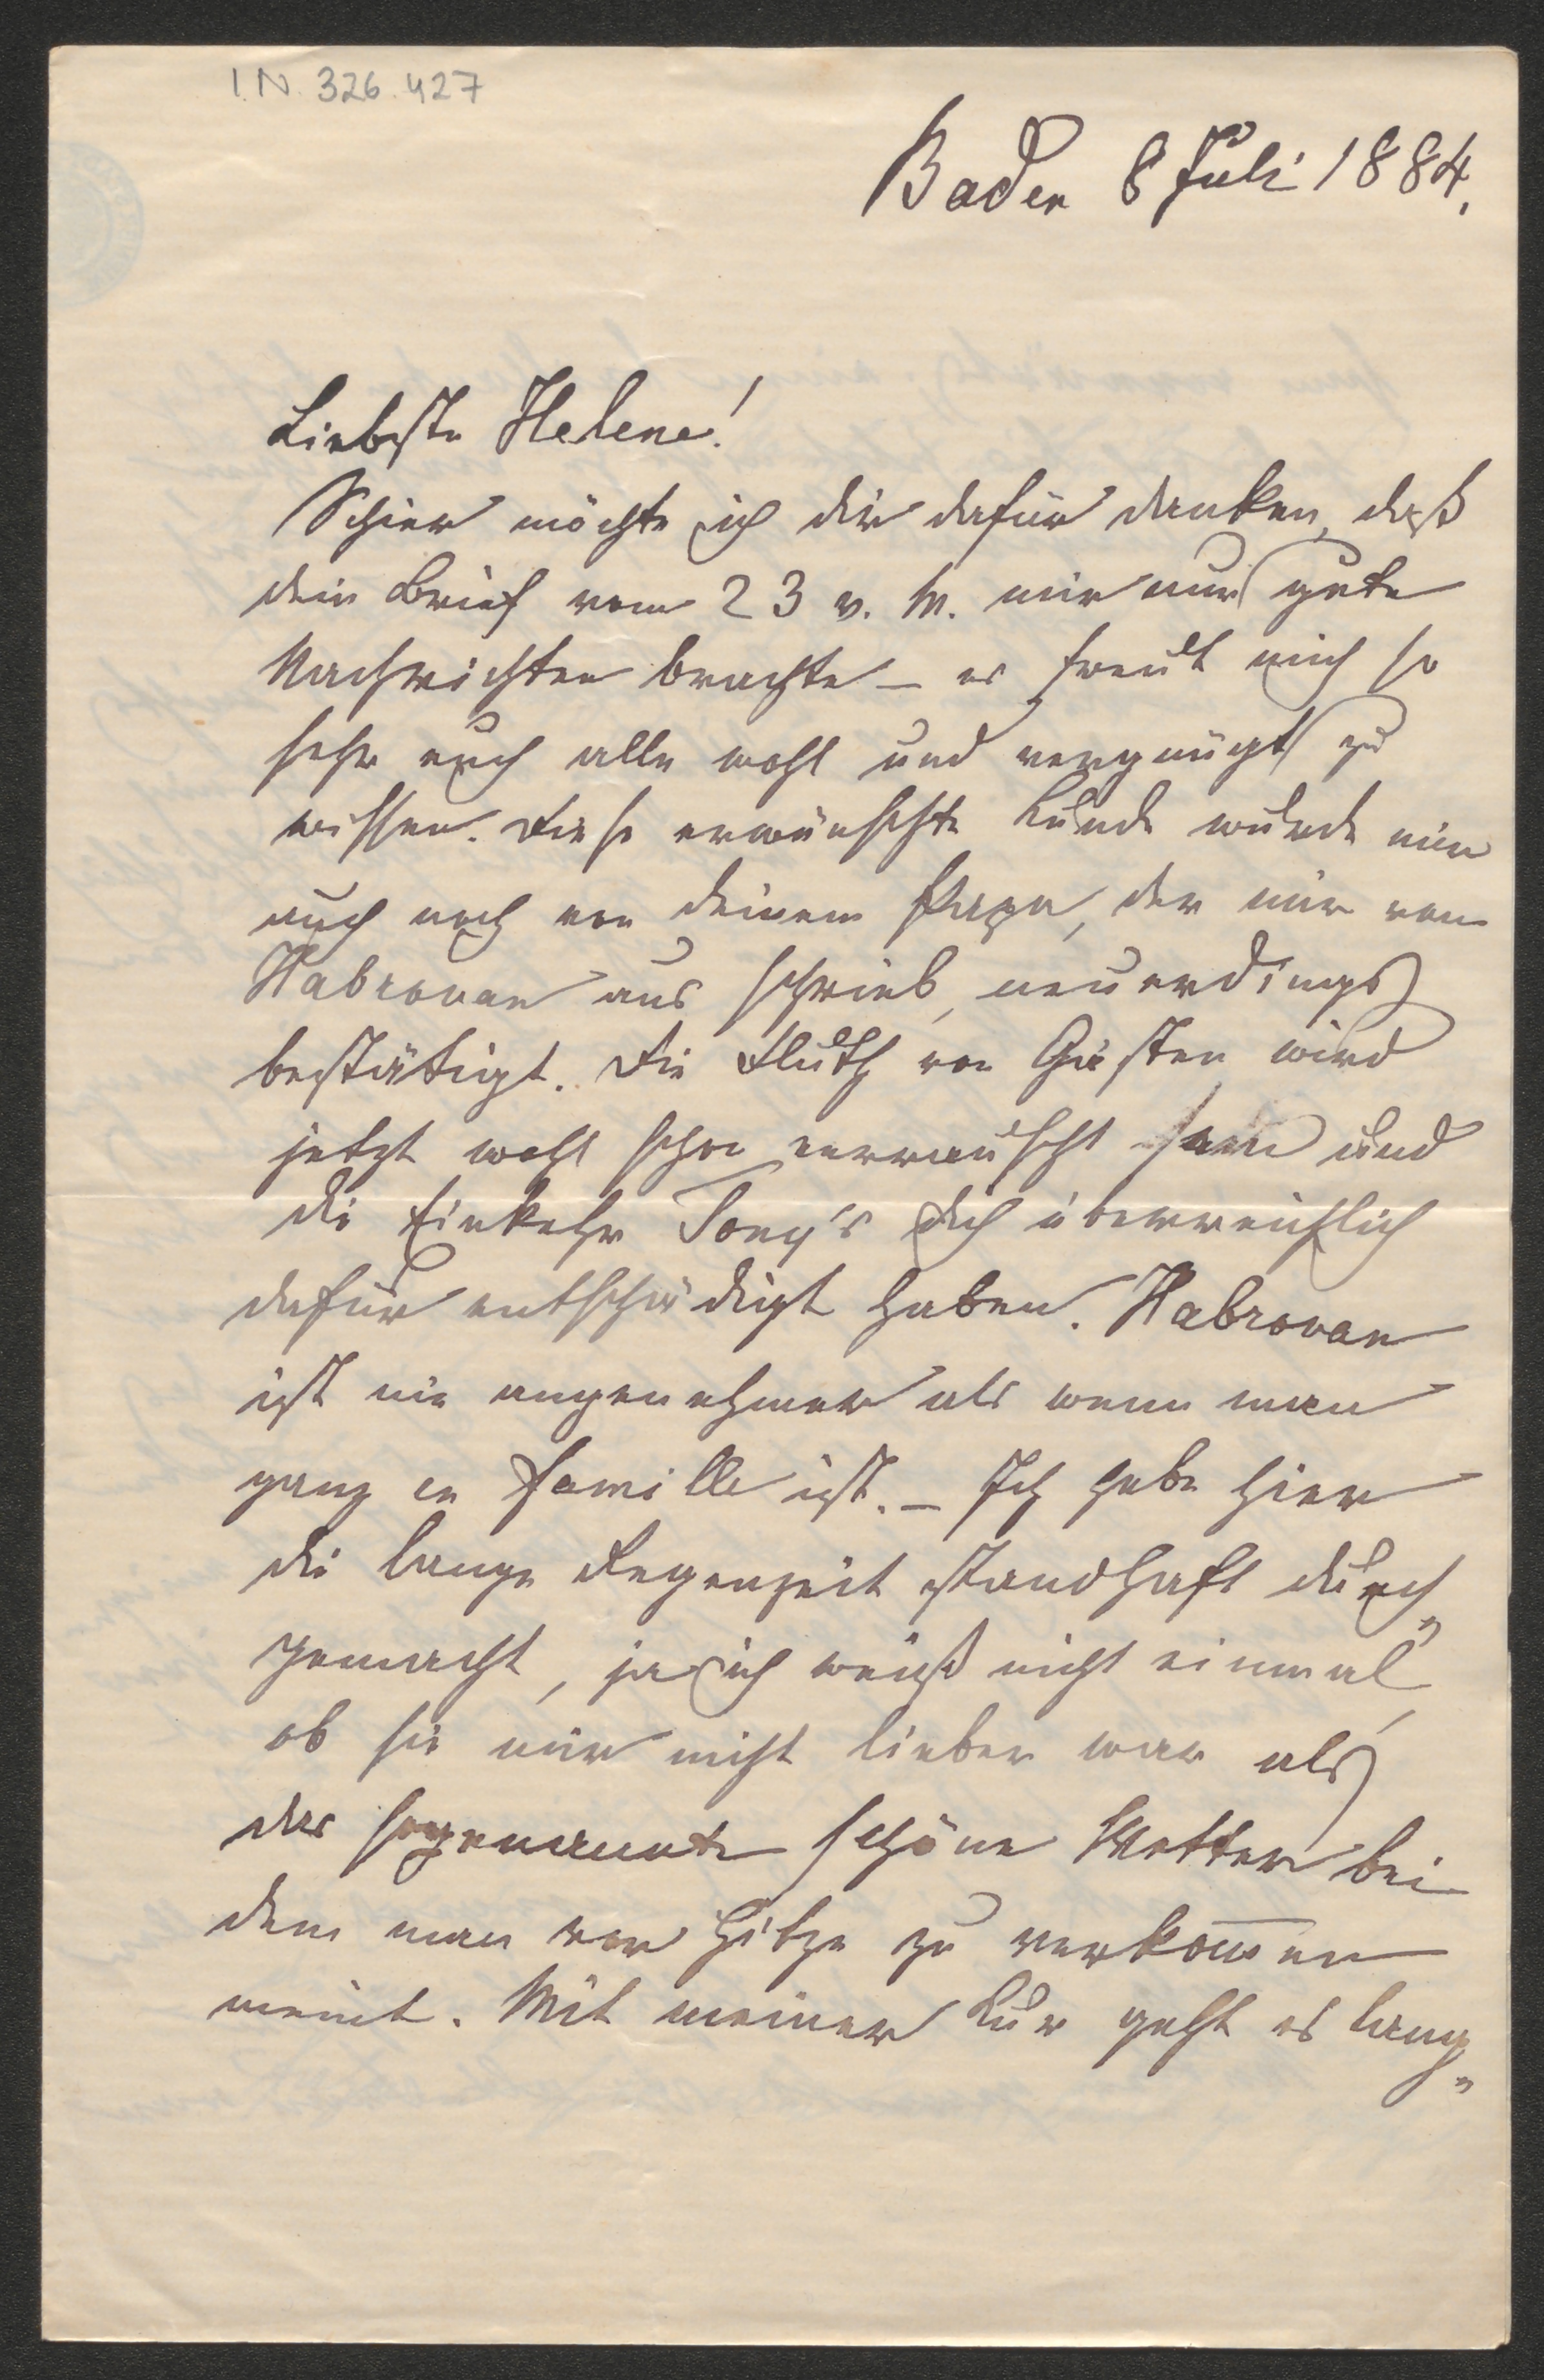 I.N. 326.427
Baden 8 Juli 1884.
Liebste Helene!
Schier möchte ich dir dafür danken, daß
dein Brief vom 23 v. M. mir nur gute
Nachrichten brachte – es freut mich so
sehr euch alle wohl und vergnügt zu
wissen. Diese erwünschte Kunde wurde mir
auch noch von deinem Papa, der mir von
Habrovan aus schrieb, neuerdings
bestätigt. Die Fluth von Gästen wird
jetzt wohl schon verrauscht sein und
die Einkehr Tony's dich überreichlich
dafür entschädigt haben. Habrovan
ist nie angenehmer als wenn man
ganz en famille ist. – Ich habe hier
die lange Regenzeit standhaft durch„
gemacht, ja ich weiß nicht einmal
ob sie mir nicht lieber war als
das sogenannte schöne Wetter bei
dem man vor Hitze zu verkom̅en
meint. Mit meiner Kur geht es lang„